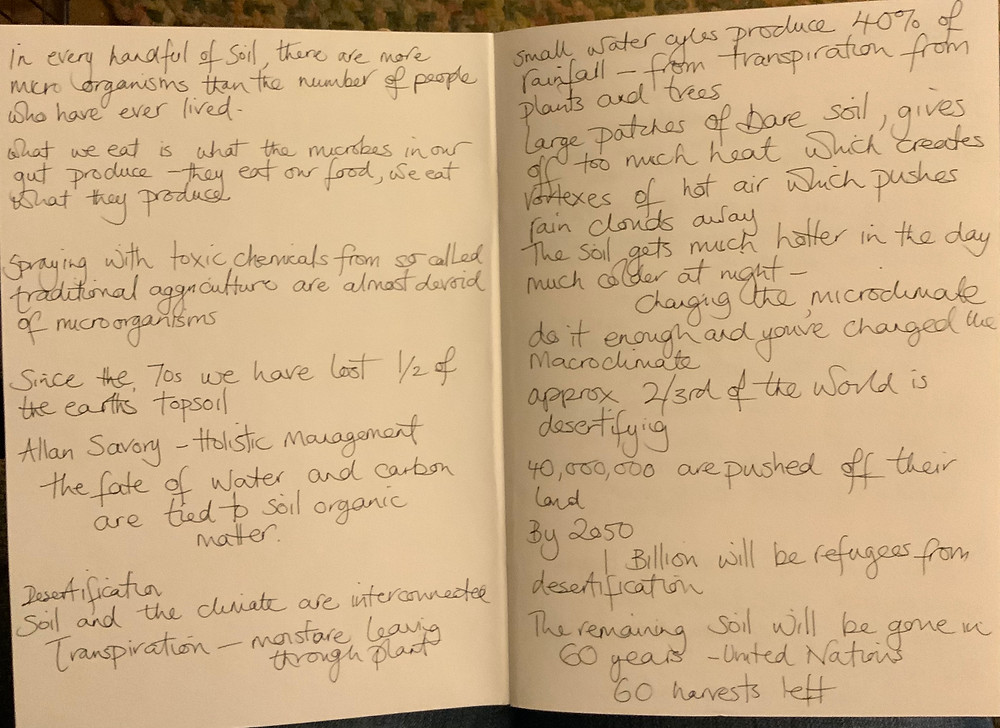 In every handful of soil, there are more
micro organisms than the number of people
who have ever lived.
What we eat is what the microbes in our
gut produce - they eat our food, we eat
what they produce
Spraying with toxic chemicals from so called
traditional aggriculture are almost devoid
of microorganisms
Since the, 70s we have lost 1/2 of
the earths topsoil
Allan Savory - Holistic Management
the fate of water and carbon
are tied to soil organic
matter.
Desertification
Soil and the climate are interconnected
Transpiration - moisture leaving
through plant
small water cyles produce 40% of
rainfall - from transpiration from
plants and trees
Large patches of bare soil, gives
off too much heat which creates
vortexes of hot air which pushes
rain clouds away
The soil gets much hotter in the day
much colder at night -
changing the microclimate
do it enough and you've changed the
Macroclimate
approx 2/3rd of the World is
desertifying
40,000,000 are pushed off their
land
By 2050
1 Billion will be refugees from
desertification
The remaining soil will be gone in
60 years - United Nations
60 harvests left